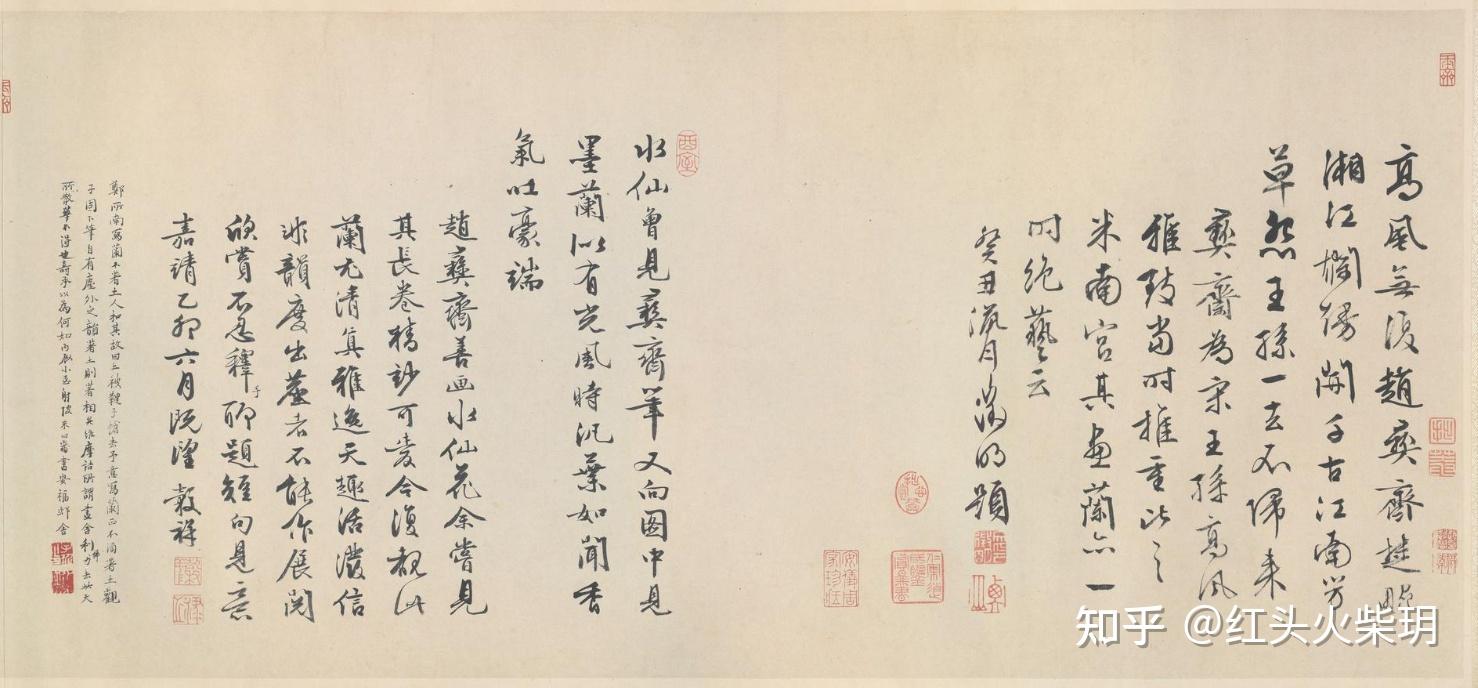 高風無復趙彝齋楚畹
湘江爛熳開千古江南芳
草怨王孫一去不歸來
彝齋為宋王孫高風
雅致當時推重比之
米南宮其畫蘭亦一
時絕藝云
癸丑臘月徵明題
水仙曾見彝齋筆又向圖中見
墨蘭似有光風時汎葉如聞香
氣吐豪端
趙彝齋善画水仙花余嘗見
其長卷精妙可愛今復覩此
蘭尤清真雅逸天趣活潑信
非韻度出塵者不能作展閱
欣賞不忍釋手聊題短句見意
嘉靖乙卯六月既望穀祥
鄭所南寫蘭不著土人和其故曰土被韃子
子固下筆自有塵外之韻著土
知乎 @红头火柴玥